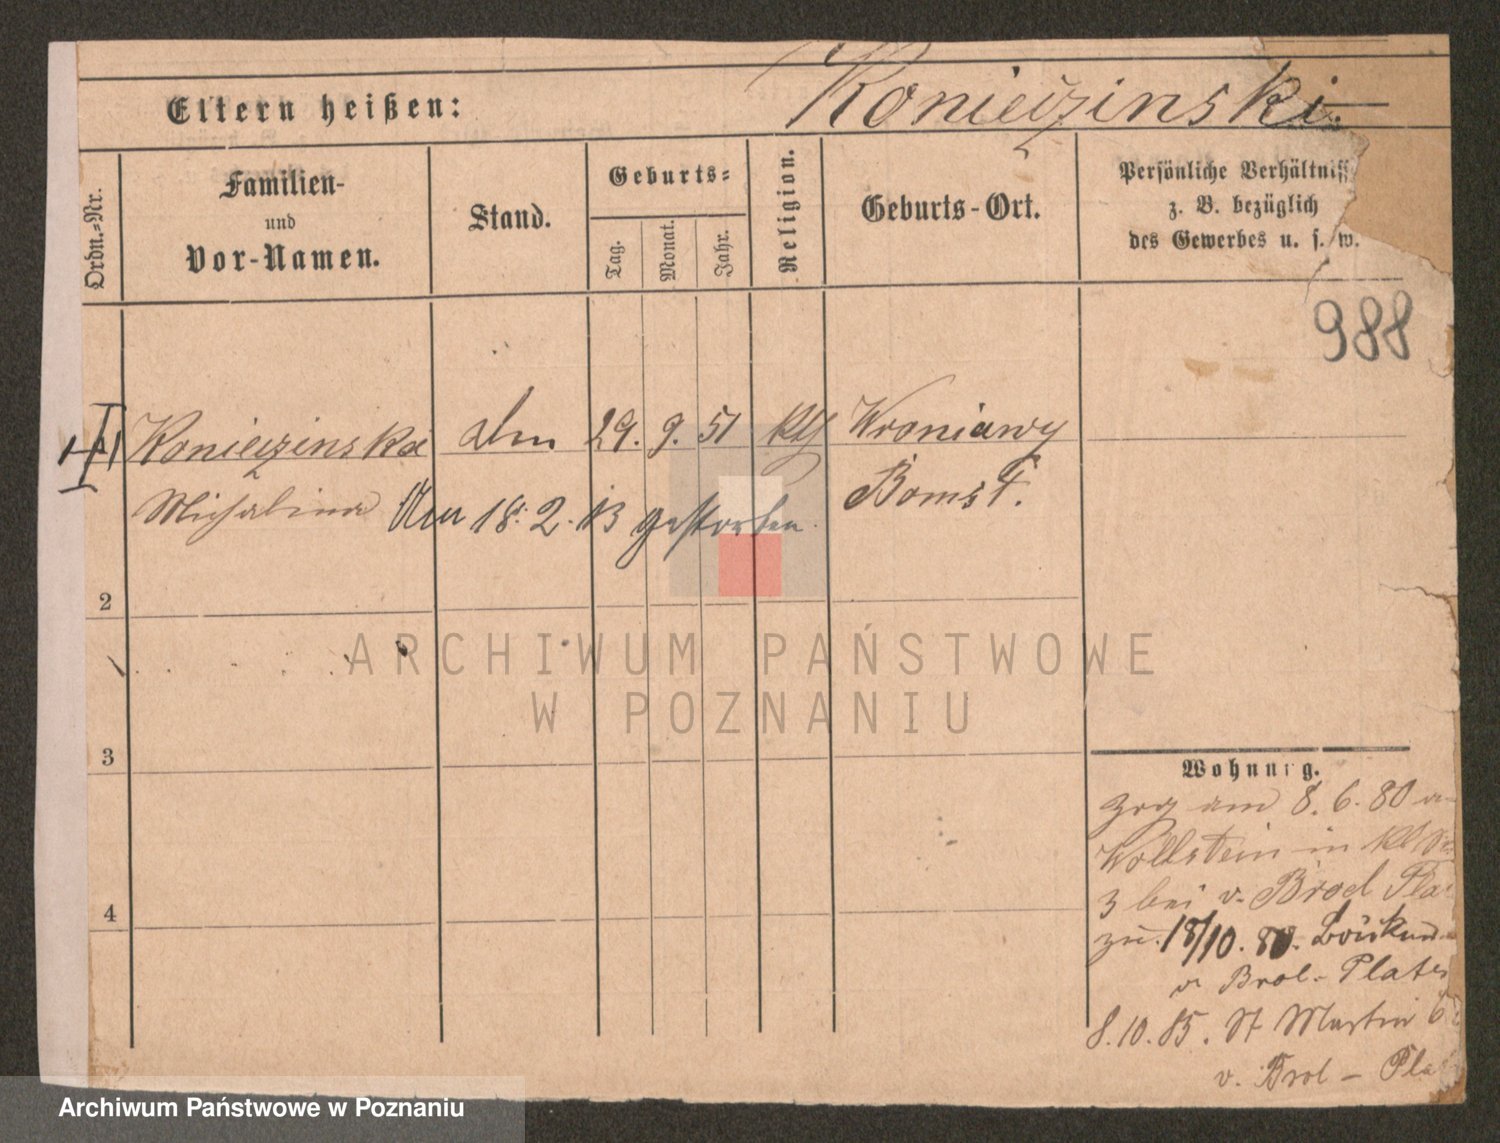 Eltern heißen:
Konieczinski.
Ordn.-Nr.
Familien-
und
Vor-Namen.
Stand.
Geburts-
Tag.
Monat.
Jahr.
Religion.
Geburts-Ort.
Persönliche Verhältniss
z. B. bezüglich
des Gewerbes u. s. w.
988
Konieczinska 29. 9. 51 kth Wroniawy
Michalina Am 18. 2. 13 gestorben. Bomst.
2
3
4
Wohnung.
zog am 8. 6. 80
Wollstein in
3 bei v. Brod Pla
zu. 18/10. 80.
v. Brol-Plater
8. 10. 85. St Martin 6
v. Brol - Pla
ARCHIWUM PAŃSTWOWE
W POZNANIU
Archiwum Państwowe w Poznaniu